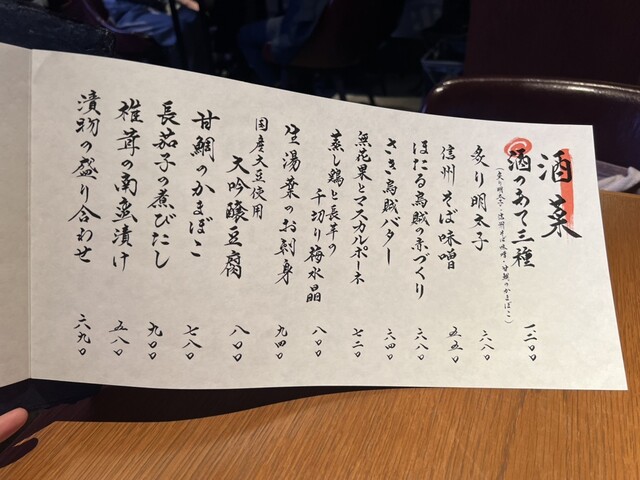 酒菜
酒のあて三種 一二〇〇
(炙り明太子・信州そば味噌・甘鯛のかまぼこ)
炙り明太子 六八〇
信州そば味噌 五五〇
ほたる烏賊の糸づくり 六八〇
さき烏賊バター 六四〇
無花果とマスカルポーネ 七二〇
蒸し鶏と長芋の
千切り梅水晶 八〇〇
生湯葉のお刺身 九四〇
国産大豆使用
大吟醸豆腐 八〇〇
甘鯛のかまぼこ 七八〇
長茄子の煮びたし 九〇〇
椎茸の南蛮漬け 五八〇
漬物の盛り合わせ 六九〇